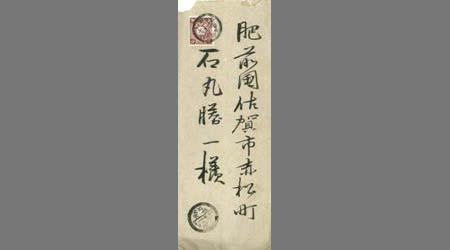 肥前国佐賀市赤松町
石丸勝一様